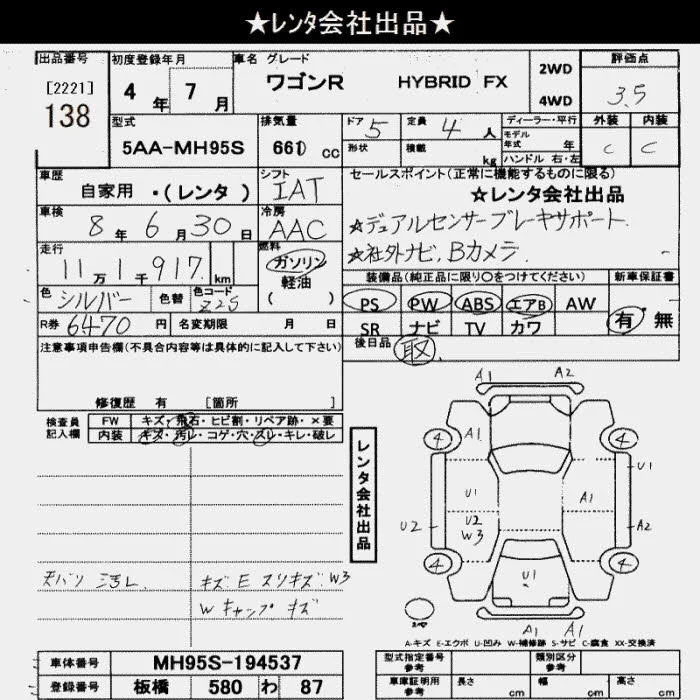 ★レンタ会社出品★
出品番号 初度登録年月 車名 グレード 評価点
[2221] 4年 7月 ワゴンR HYBRID FX 2WD 3.5
138 4WD
型式 排気量 ドア 5 定員 4人 ディーラー・平行 外装 内装
5AA-MH95S 660 cc 形状 積載 kg モデル年式 年 C C
ハンドル 右・左
車歴 シフト セールスポイント(正常に機能するものに限る)
自家用 ・(レンタ) IAT ★レンタ会社出品
車検 8年 6月 30日 冷房 AAC ☆デュアルセンサーブレーキサポート
走行 燃料 ☆社外ナビ, Bカメラ
11万1千917 km ガソリン 装備品(純正品に限り○をつけてください) 新車保証書
色 シルバー 色替 色コード Z2S 軽油 PS PW ABS エアB AW 有・無
( ) SR ナビ TV カワ
R券 6470円 名変期限 月 日 後日品 取
注意事項申告欄(不具合内容等は具体的に記入して下さい)
修復歴 有 [箇所 ]
検査員記入欄 FW キズ・飛石・ヒビ割・リペア跡・×要
内装 キズ・汚レ・コゲ・穴・スレ・キレ・破レ
A1 A2
A1
4 4
U1
U1 A1
U2 U2 A2
W3
4 4
U1
A1 A1
レンタ会社出品
天バリ 汚レ キズ E スリキズ W3
W キャップ キズ
A-キズ E-エクボ U-凹み W-補修跡 S-サビ C-腐食 XX-交換済
車体番号 MH95S-194537 型式指定番号 参考 類別区分 参考
登録番号 板橋 580 わ 87 車庫証明用 参考 長さ cm 幅 cm 高さ cm